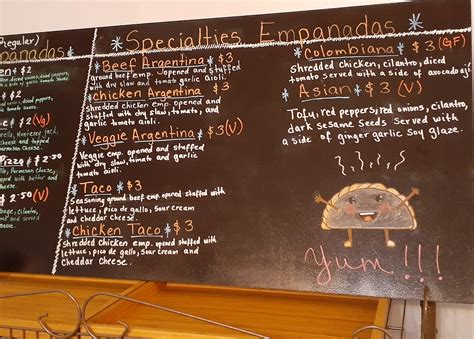 Regular)
panadas
$2
$2
$2.50 (V)
Specialties Empanadas
Beef Argentina $3
ground beef emp. opened and stuffed
with diy slaw, tomato and garlic
tomato aioli.
Chicken Argentina $3
Shredded chicken emp. opened and
stuffed with diy slaw, tomato, and
garlic tomato aioli.
Veggie Argentina $3 (V)
Veggie emp. opened and stuffed
with diy slaw, tomato and garlic
tomato aioli.
Taco $3
Seasoning ground beef emp. opened stuffed with
lettuce, pico de gallo, sour cream
and cheddar Cheese.
Chicken Taco $3
Shredded Chicken emp. opened stuffed with
lettuce, pico de gallo, sour cream and
Cheddar Cheese.
Colombiana $3 (GF)
Shredded chicken, cilantro, diced
tomato served with a side of avocado
Asian $3 (V)
Tofu, red peppers, red onions, cilantro,
dark sesame seeds served with
a side of ginger garlic soy glaze.
Yum!!!